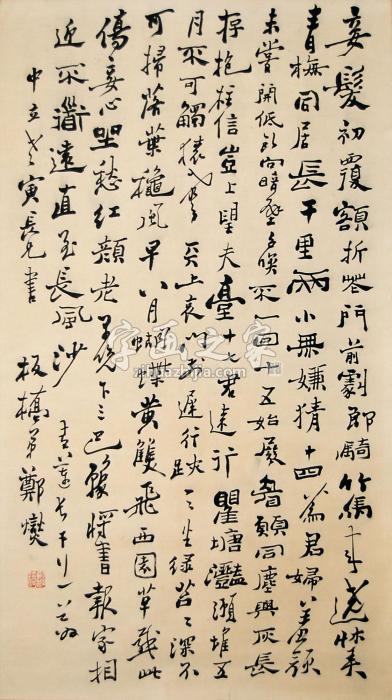 妾髮初覆額折花門前劇郎騎竹馬來遶牀
青梅同居長干里兩小無嫌猜十四為君婦羞顏
未嘗開低頭向暗壁千喚不一回十五始展眉願同塵與灰長
存抱柱信豈上望夫臺十六君遠行瞿塘灩澦堆五
月不可觸猿聲天上哀門前遲行跡一一生綠苔苔深不
可掃落葉秋風早八月蝴蝶黃雙飛西園草感此
傷妾心坐愁紅顏老早晚下三巴豫將書報家相
迎不道遠直至長風沙 長干行一首
中立老寅長兄書 板橋弟鄭燮
字画之家